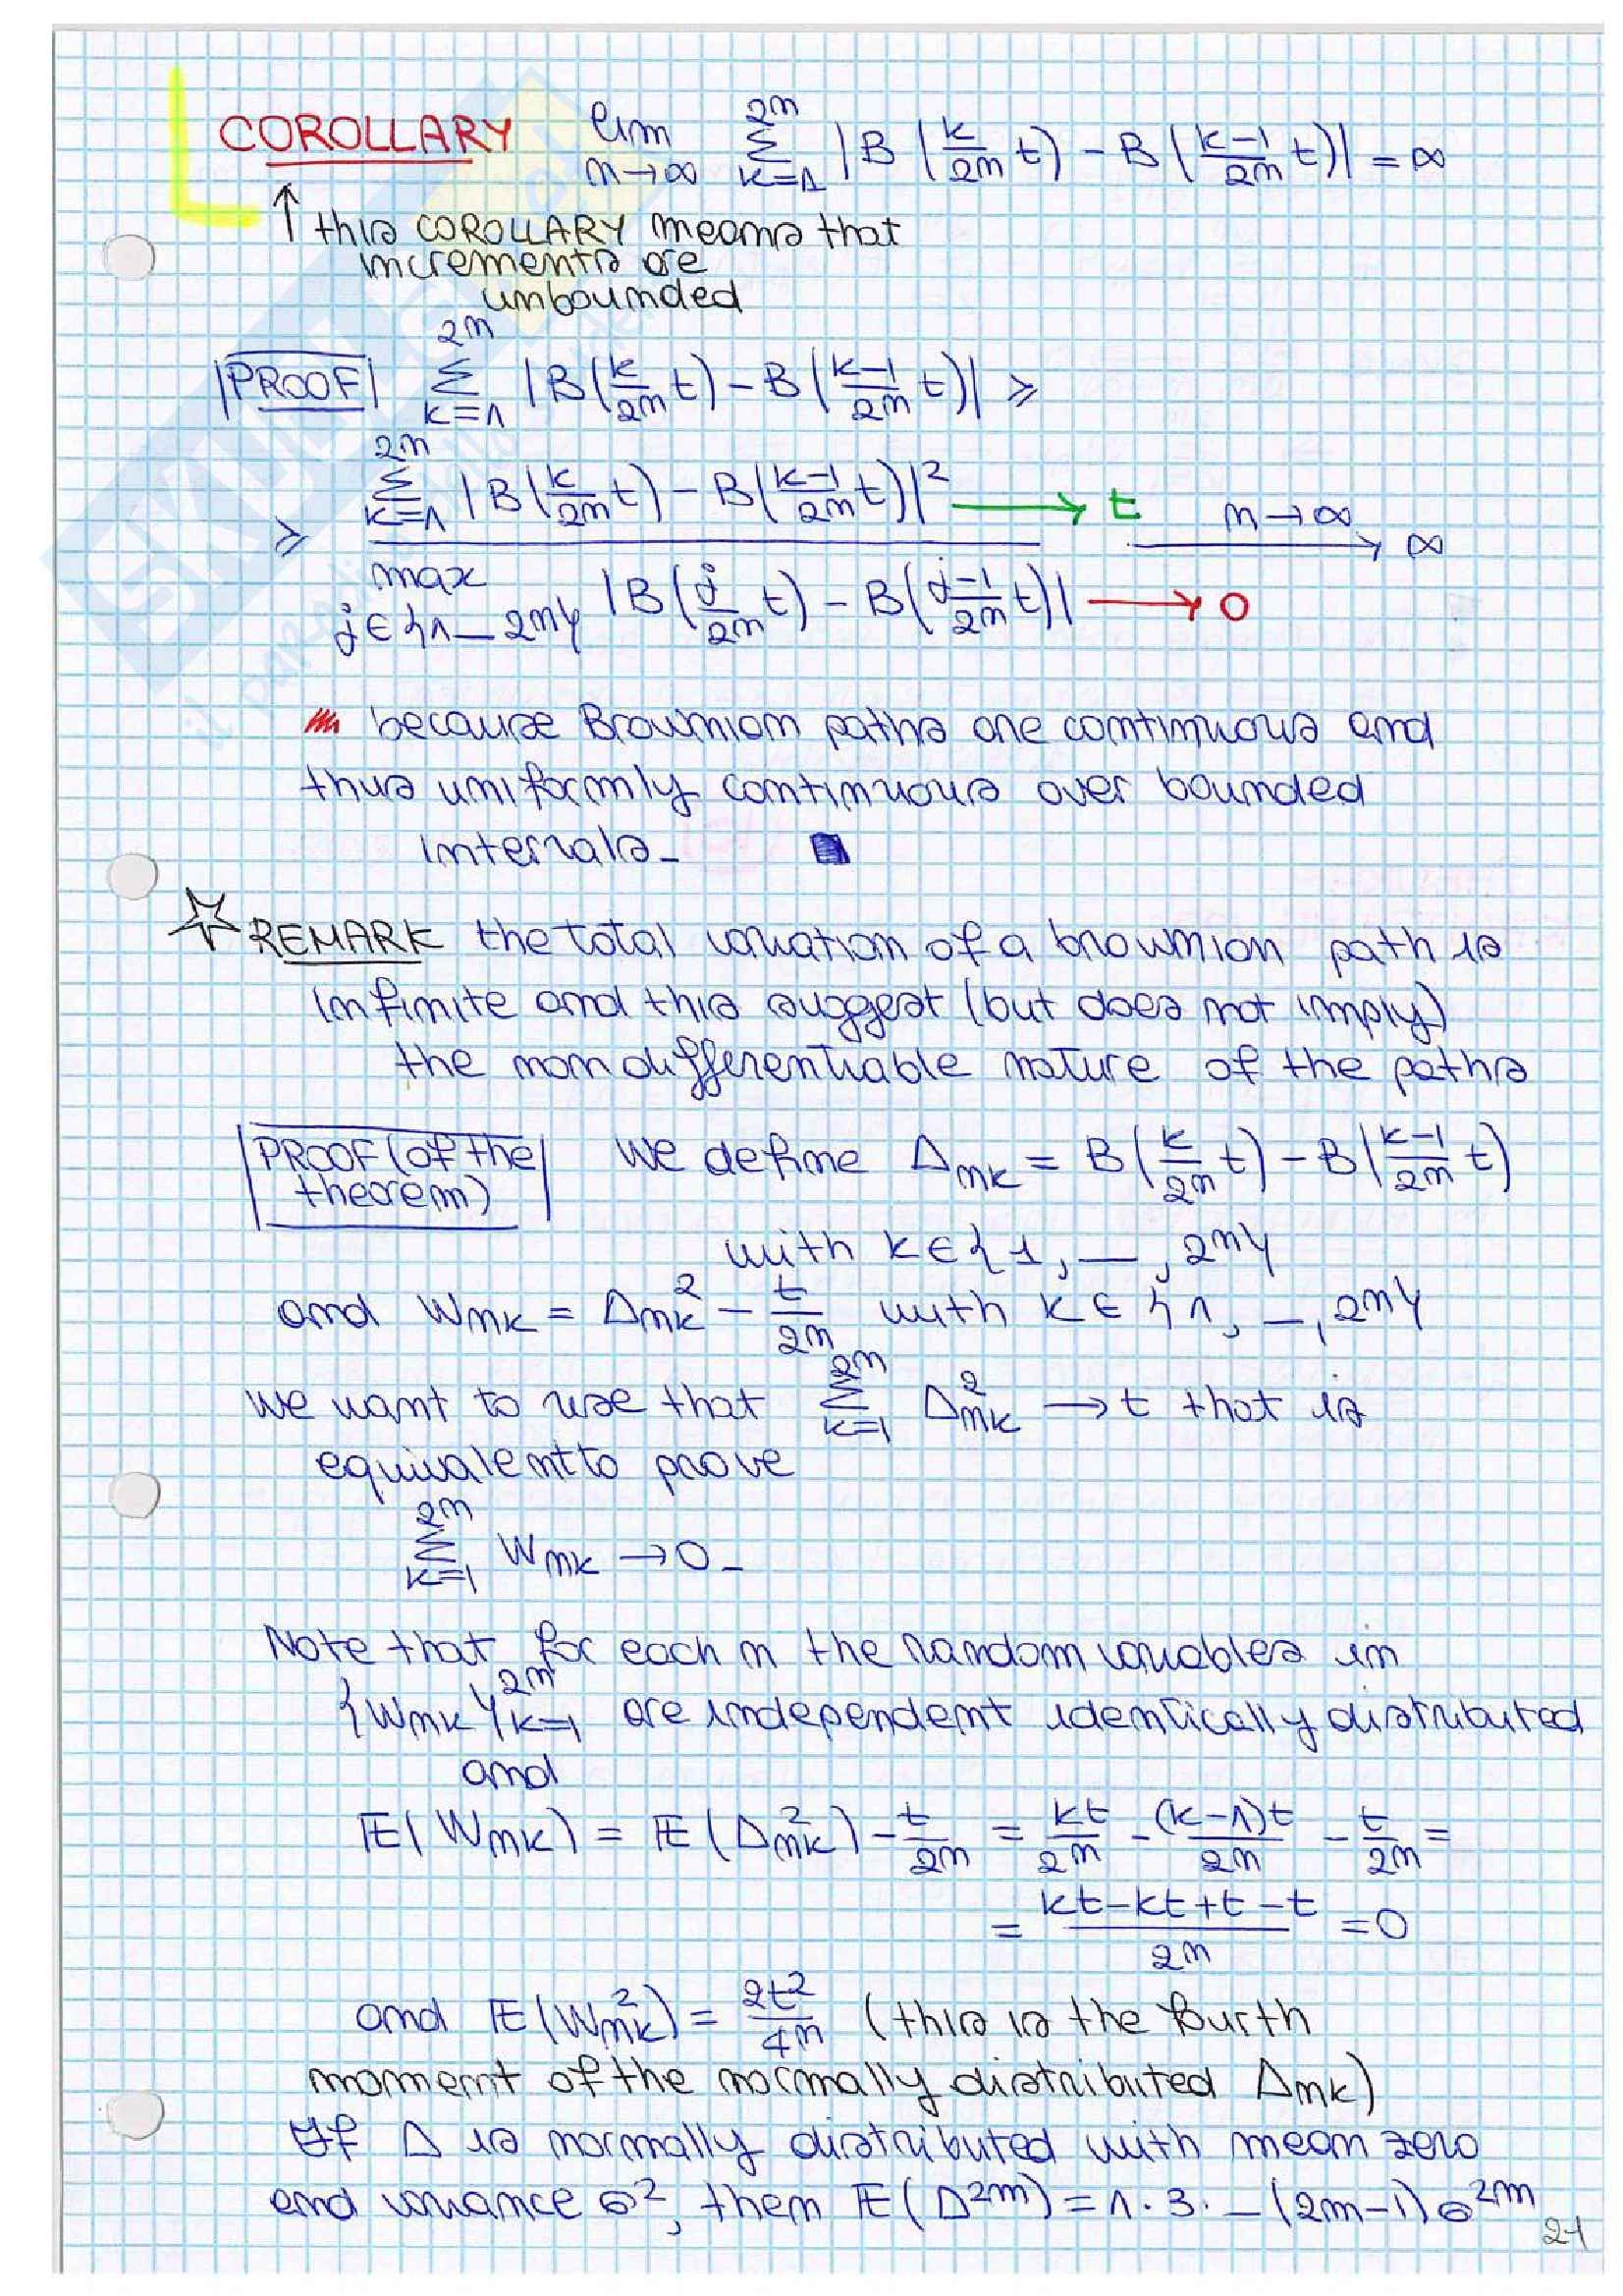 COROLLARY lim n→∞ Σ_{k=1}^{2^n} |B(k/2^n t) - B((k-1)/2^n t)| = ∞
↑ this COROLLARY means that
increments are
unbounded
|PROOF| Σ_{k=1}^{2^n} |B(k/2^n t) - B((k-1)/2^n t)| ⩾
⩾ Σ_{k=1}^{2^n} |B(k/2^n t) - B((k-1)/2^n t)|^2 → t
n→∞ → ∞
max j∈{1 _ 2^n} |B(j/2^n t) - B((j-1)/2^n t)| → 0
because Brownian paths are continuous and
thus uniformly continuous over bounded
intervals_
☆ REMARK the total variation of a brownian path is
infinite and this suggest (but does not imply)
the non differentiable nature of the paths
|PROOF (of the theorem)| We define Δ_{nk} = B(k/2^n t) - B((k-1)/2^n t)
with k∈{1, _, 2^n}
and W_{nk} = Δ_{nk}^2 - t/2^n with k∈{1, _, 2^n}
We want to use that Σ_{k=1}^{2^n} Δ_{nk}^2 → t that is
equivalent to prove
Σ_{k=1}^{2^n} W_{nk} → 0_
Note that for each n the random variables in
{W_{nk}}_{k=1}^{2^n} are independent identically distributed
and
E(W_{nk}) = E(Δ_{nk}^2) - t/2^n = kt/2^n - (k-1)t/2^n - t/2^n =
= (kt-kt+t-t)/2^n = 0
and E(W_{nk}^2) = 2t^2/4^n (this is the fourth
moment of the normally distributed Δ_{nk})
If Δ is normally distributed with mean zero
and variance σ^2, then E(Δ^{2m}) = 1·3· _ (2m-1)σ^{2m}
21